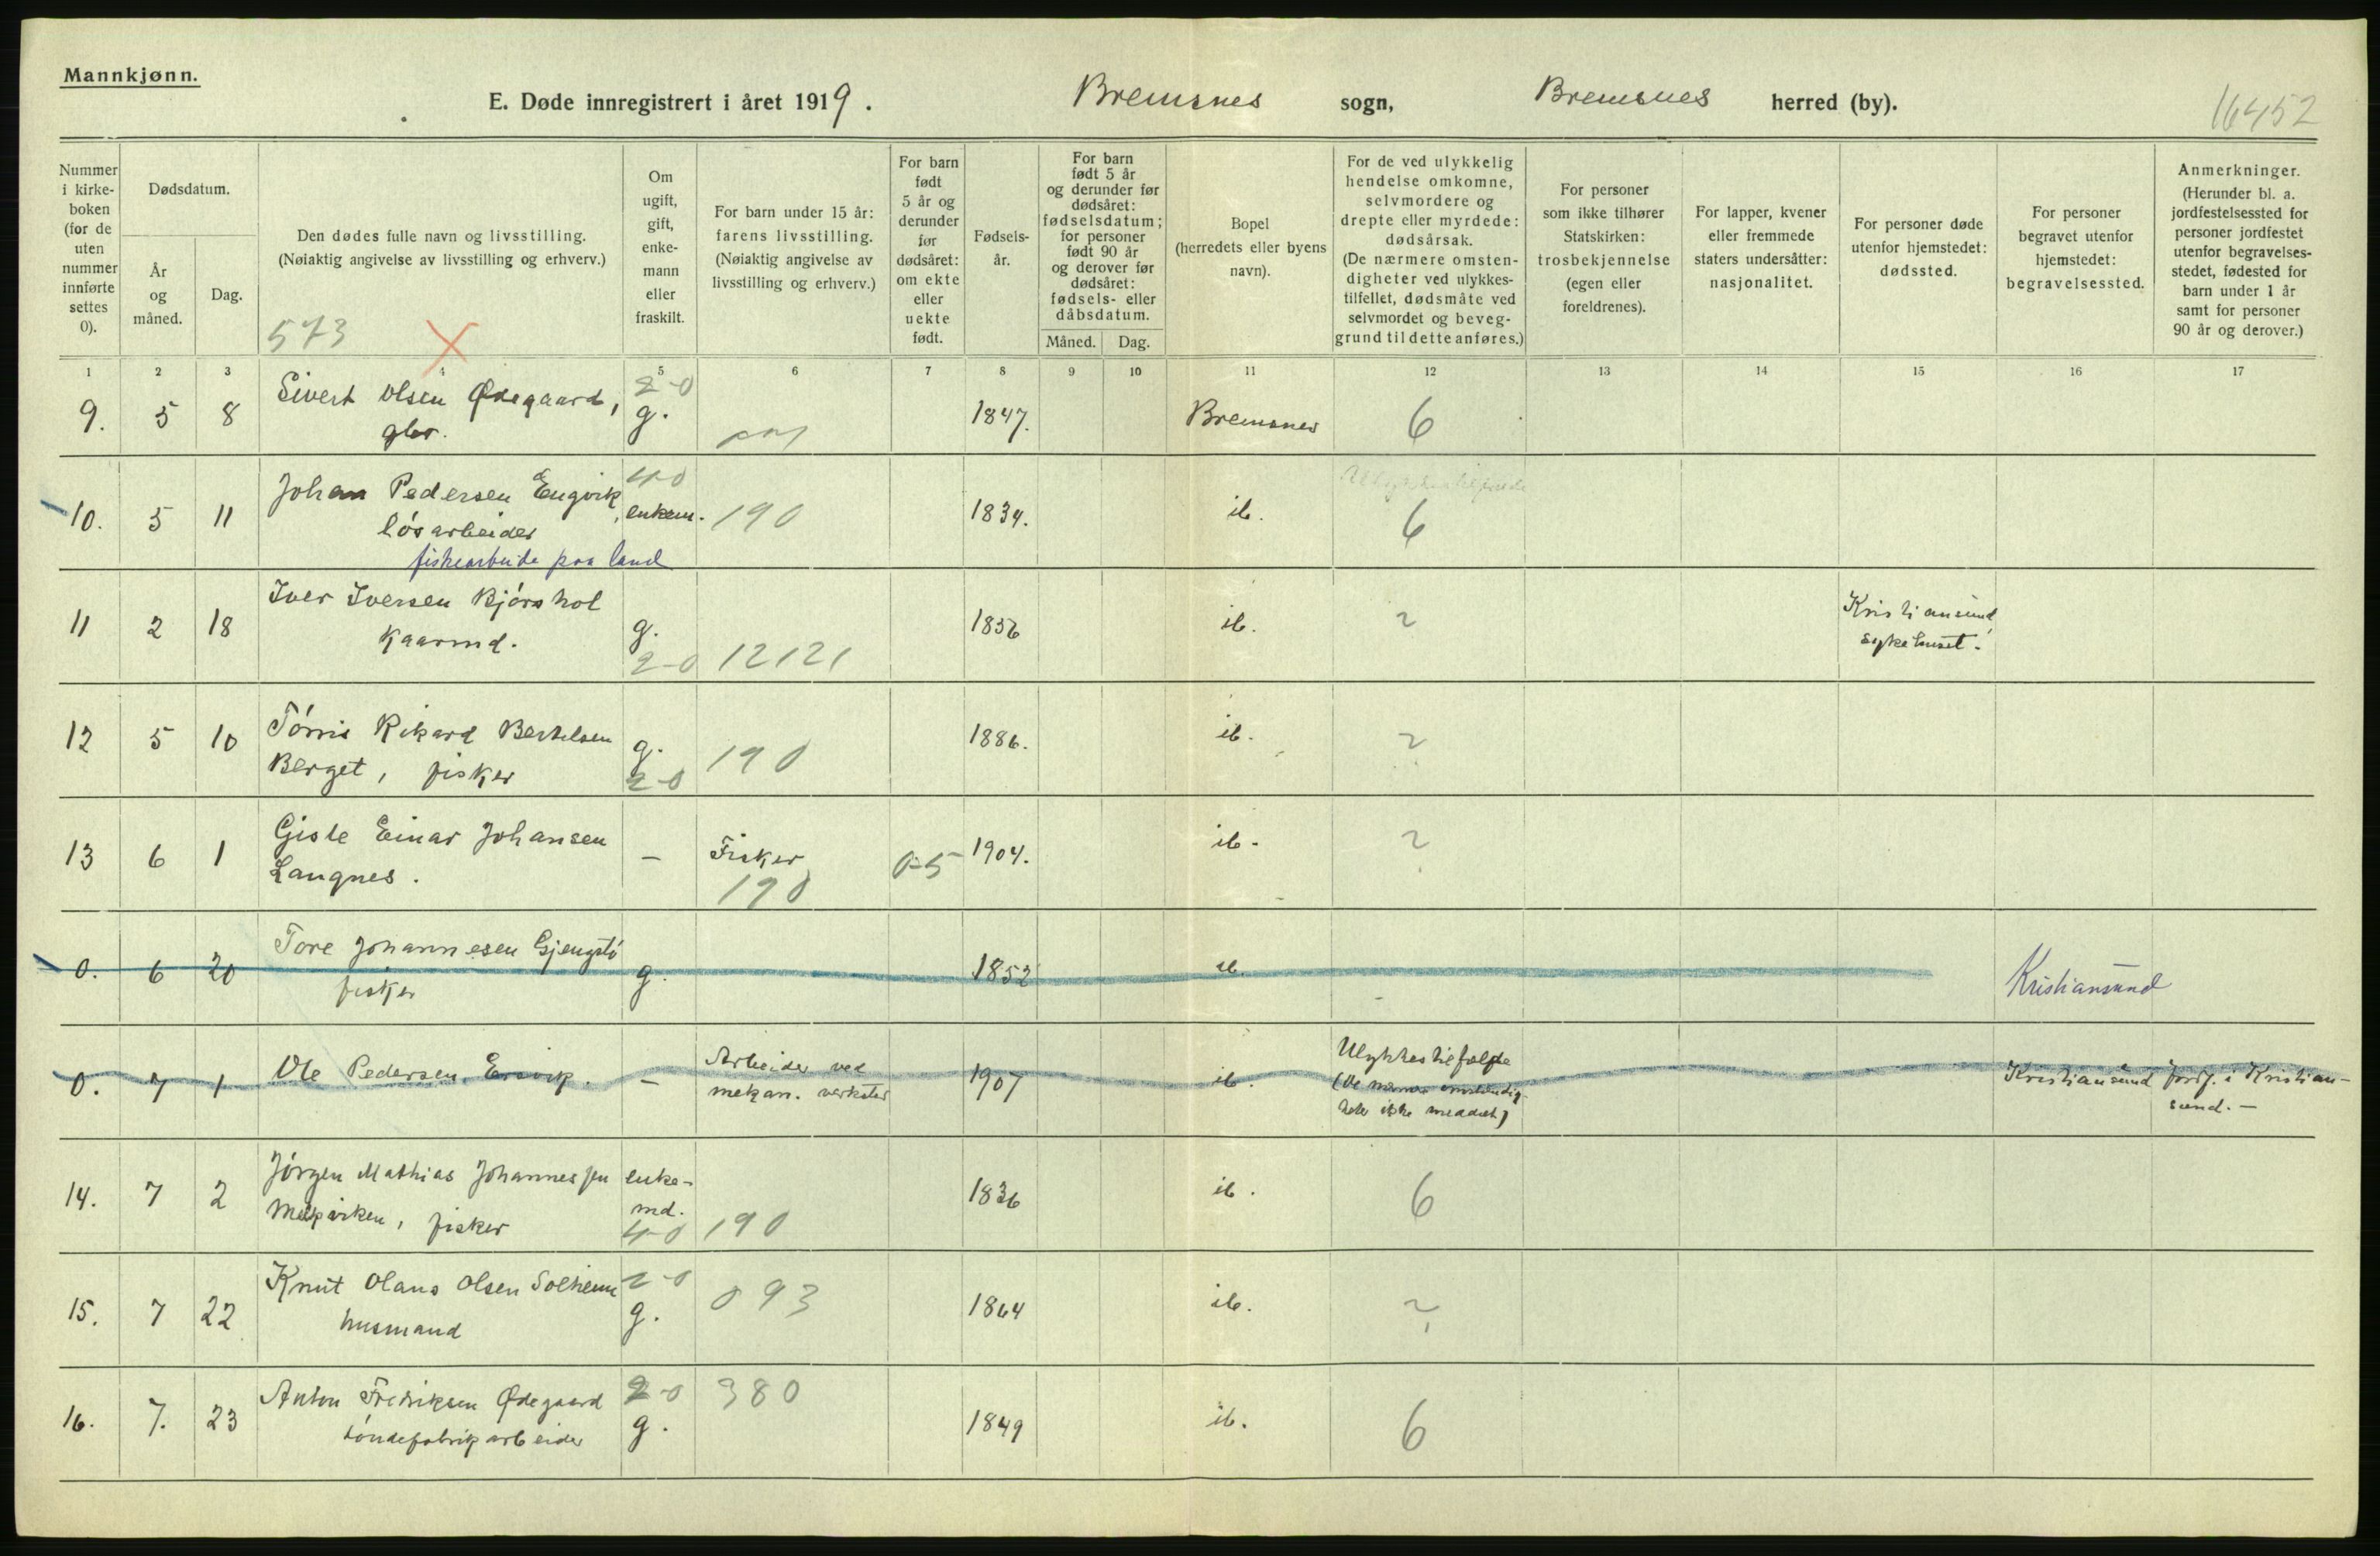 Mannkjønn.
E. Døde innregistrert i året 1919. Bremsnes sogn, Bremsnes herred (by).
16452
Nummer i kirke-boken (for de uten nummer innførte settes 0).
Dødsdatum.
År og måned.
Dag.
Den dødes fulle navn og livsstilling.
(Nøiaktig angivelse av livsstilling og erhverv.)
573 X
Om ugift, gift, enke-mann eller fraskilt.
For barn under 15 år: farens livsstilling. (Nøiaktig angivelse av livsstilling og erhverv.)
For barn født 5 år og derunder før dødsåret: om ekte eller uekte født.
Fødsels-år.
For barn født 5 år og derunder før dødsåret: fødselsdatum; for personer født 90 år og derover før dødsåret: fødsels- eller dåbsdatum.
Måned. Dag.
Bopel (herredets eller byens navn).
For de ved ulykkelig hendelse omkomne, selvmordere og drepte eller myrdede: dødsårsak. (De nærmere omsten-digheter ved ulykkes-tilfellet, dødsmåte ved selvmordet og beveg-grund til dette anføres.)
For personer som ikke tilhører Statskirken: trosbekjennelse (egen eller foreldrenes).
For lapper, kvener eller fremmede staters undersåtter: nasjonalitet.
For personer døde utenfor hjemstedet: dødssted.
For personer begravet utenfor hjemstedet: begravelsessted.
Anmerkninger. (Herunder bl. a. jordfestelsessted for personer jordfestet utenfor begravelses-stedet, fødested for barn under 1 år samt for personer 90 år og derover.)
1 2 3 4 5 6 7 8 9 10 11 12 13 14 15 16 17
9. 5 8 Sivert Olsen Ødegaard, 2-0 g. 1847. Bremsnes 6
gbr.
10. 5 11 Johan Pedersen Engvik, 4-0 enkem. 190 1834. ib. 6
løsarbeider
fiskearbeide paa land
11 2 18 Iver Iversen Bjørshol g. 1836 ib. ? Kristiansund
kaarmd. 2-0 12121 sykehuset.
12 5 10 Tørris Rikard Bertelsen g. 190 1886. ib. ?
Berget, fisker 2-0
13 6 1 Gisle Einar Johansen - Fisker 0-5 1904. ib. ?
Langnes. 190
0. 6 20 Tore Johannesen Gjengstø g. 1852 ib. Kristiansund
fisker
0. 7 1 Ole Pedersen Ersvik. - Arbeider ved mekan. verksted 1907 ib. Ulykkestilfælde
(De nærmere omstændig-
heter ikke meddelt) Kristiansund Jordf. i Kristian-
sund. -
14. 7 2 Jørgen Mathias Johannessen enke-md. 1836 ib. 6
fisker 4-0 190
15. 7 22 Knut Olaus Olsen Solheim 2-0 g. 093 1864 ib. ?
husmand
16. 7. 23 Anton Fredriksen Ødegaard 2-0 g. 380 1849 ib. 6
tøndefabrikarbeider